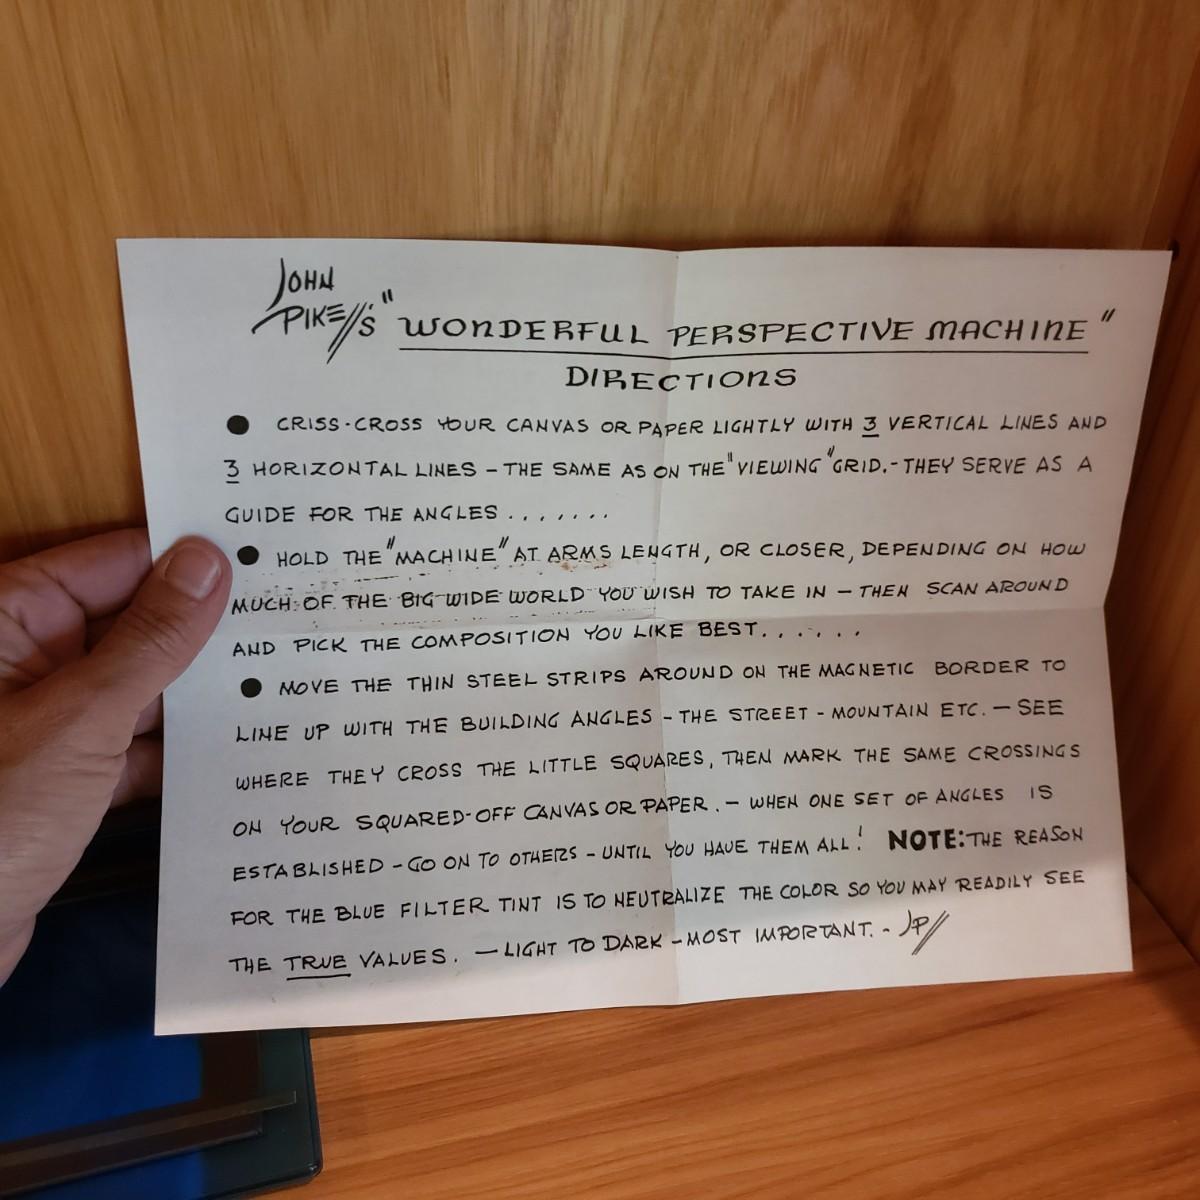 JOHN
PIKE'S "WONDERFUL PERSPECTIVE MACHINE"
DIRECTIONS
● CRISS-CROSS YOUR CANVAS OR PAPER LIGHTLY WITH 3 VERTICAL LINES AND
3 HORIZONTAL LINES - THE SAME AS ON THE "VIEWING" GRID. - THEY SERVE AS A
GUIDE FOR THE ANGLES .......
● HOLD THE "MACHINE" AT ARMS LENGTH, OR CLOSER, DEPENDING ON HOW
MUCH OF THE BIG WIDE WORLD YOU WISH TO TAKE IN - THEN SCAN AROUND
AND PICK THE COMPOSITION YOU LIKE BEST......
● MOVE THE THIN STEEL STRIPS AROUND ON THE MAGNETIC BORDER TO
LINE UP WITH THE BUILDING ANGLES - THE STREET - MOUNTAIN ETC. - SEE
WHERE THEY CROSS THE LITTLE SQUARES, THEN MARK THE SAME CROSSINGS
ON YOUR SQUARED-OFF CANVAS OR PAPER. - WHEN ONE SET OF ANGLES IS
ESTABLISHED - GO ON TO OTHERS - UNTIL YOU HAVE THEM ALL! NOTE: THE REASON
FOR THE BLUE FILTER TINT IS TO NEUTRALIZE THE COLOR SO YOU MAY READILY SEE
THE TRUE VALUES. - LIGHT TO DARK - MOST IMPORTANT. - JP//